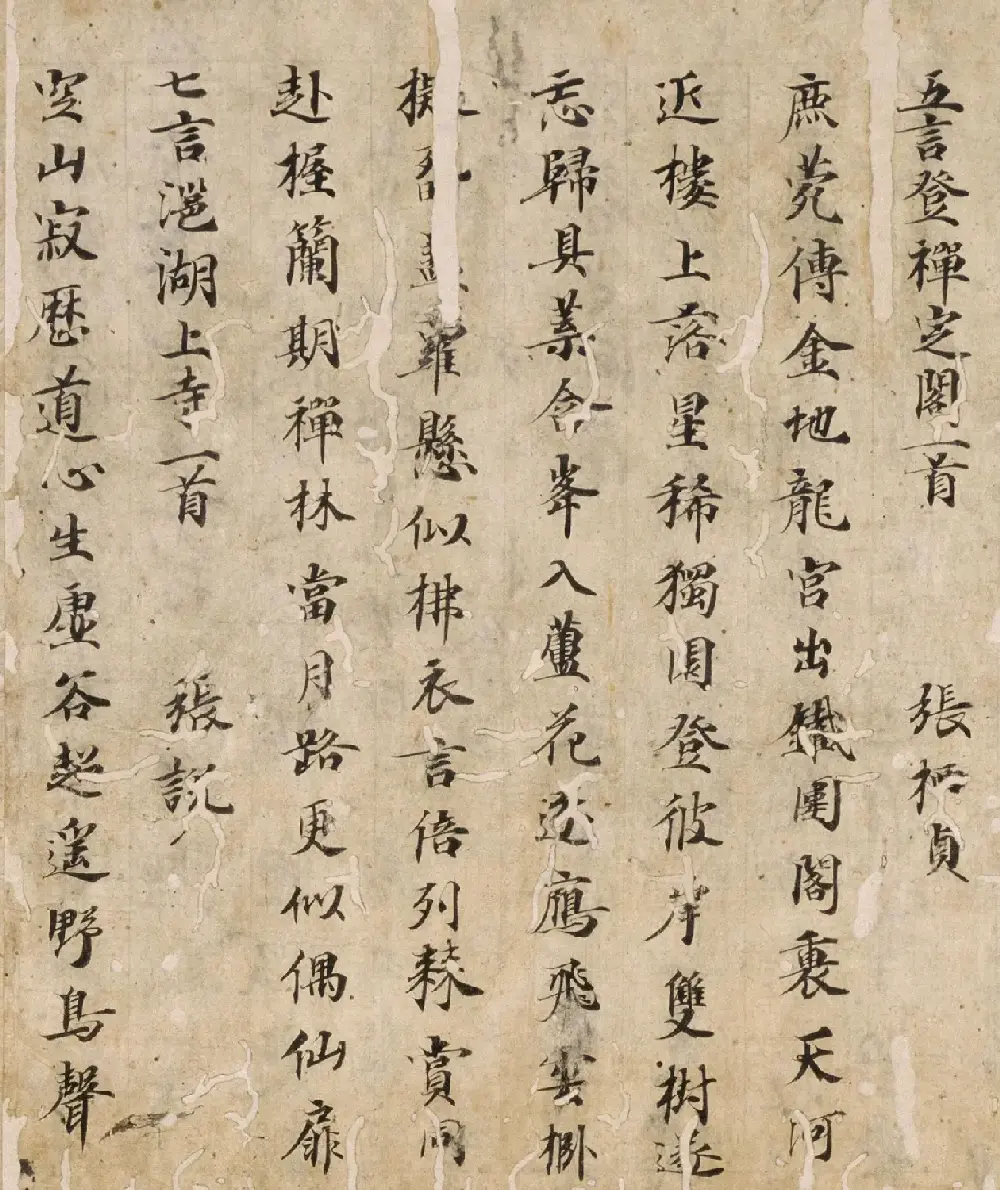 五言登禪定閣一首 張栖貞
鹿菀傳金地龍宮出鐵圍閣裏天河
近樓上落星稀獨園登彼岸雙樹遂
忘歸具葉含峯入蘆花逐鴈飛雲
擬盖羅懸似拂衣言倍列棘賞同
赴握蘭期禪林當月路更似偶仙扉
七言㴩湖上寺一首 張説
空山寂歷道心生虛谷迢遥野鳥聲